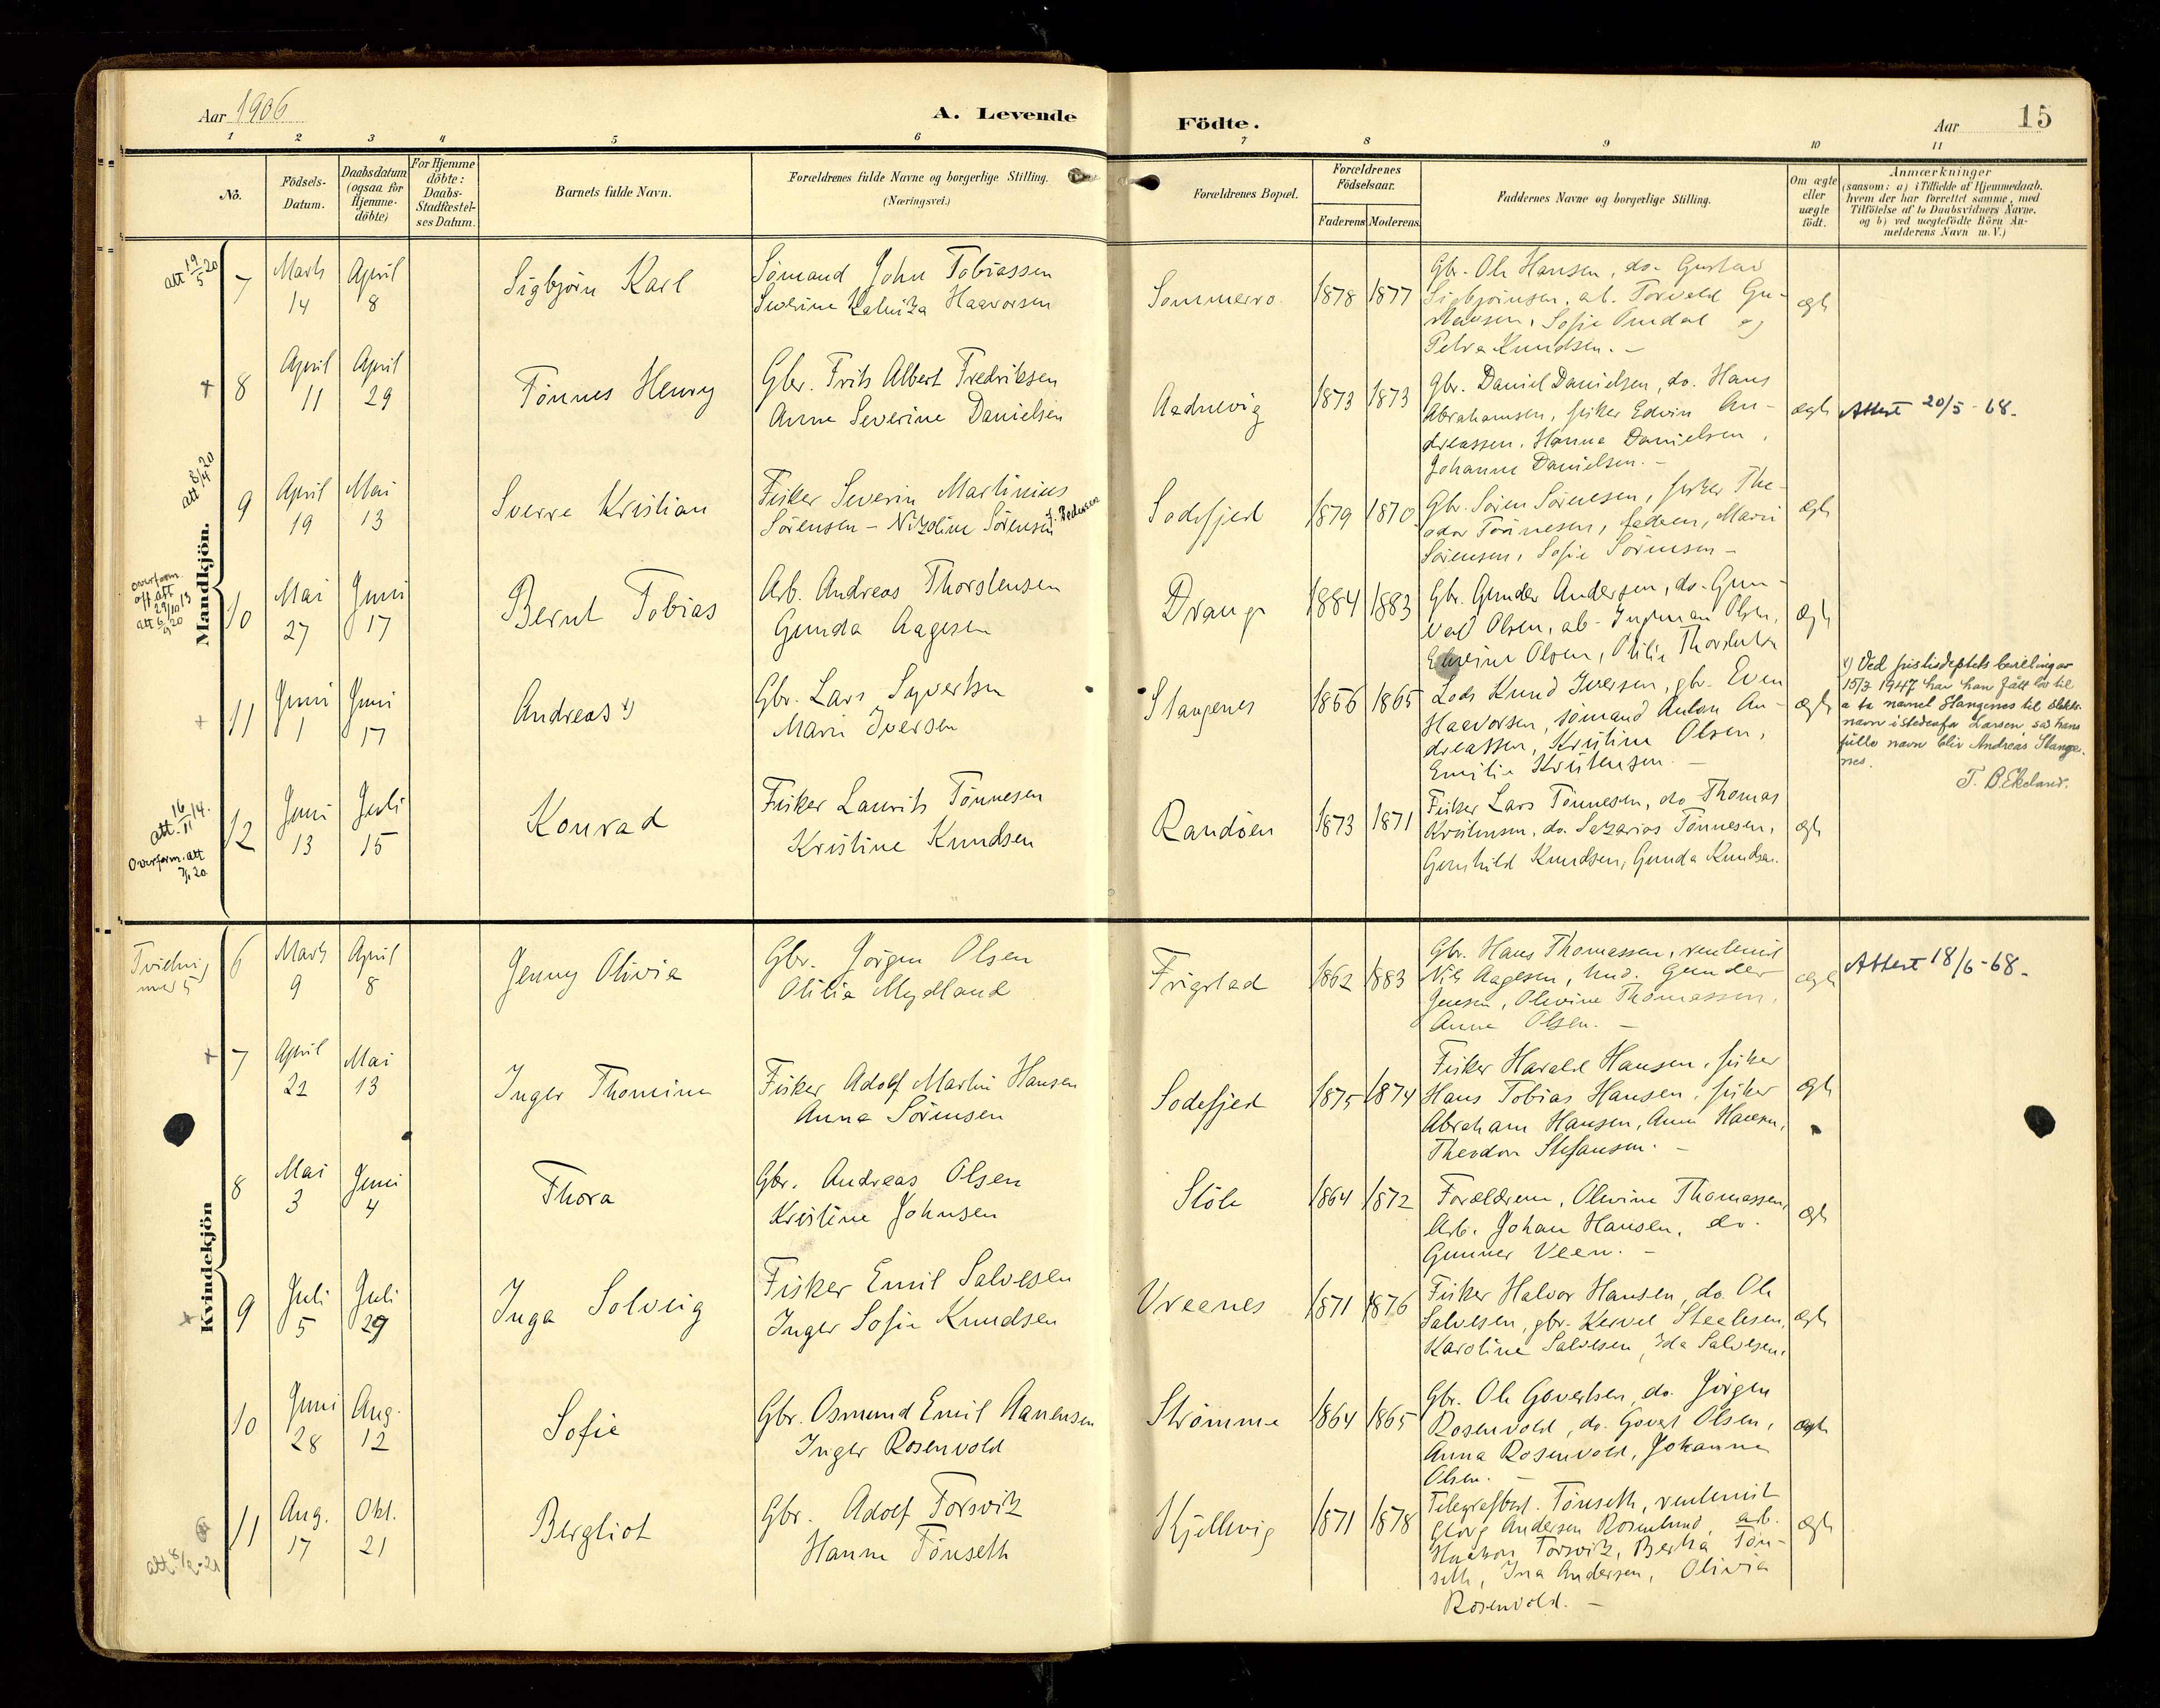 Aar 1906
A. Levende Födte.
Aar
15
1 2 3 4 5 6 7 8 9 10 11
No.
Födsels-
Datum.
Daabsdatum
(ogsaa for
Hjemme-
döbte)
For Hjemme
döbte:
Daabs-
Stadfæstel-
ses Datum.
Barnets fulde Navn.
Forældrenes fulde Navne og borgerlige Stilling.
(Næringsvei.)
Forældrenes Bopæl.
Forældrenes
Födselsaar.
Faderens Moderens
Faddernes Navne og borgerlige Stilling.
Om ægte
eller
uægte
födt.
Anmærkninger
(saasom: a) i Tilfælde af Hjemmedaab.
hvem der har forrettet samme, med
Tilföielse af to Daabsvidners Navne.
og b) ved uægtefödte Börn An-
melderens Navn m. V.)
Mandkjön.
att 19/5 20
7
Marts
14
April
8
Sigbjörn Karl
Sömand John Tobiassen
Severine Haavorsen
Sommerro
1878 1877
Gbr. Ole Hansen, do. Gustav
Sigbjörnsen, ab. Torvald Gu-
stavsen, Sofie Omdal og
Petra Knudsen. -
ægte
+
8
April
11
April
29
Tönnes Henry
Gbr. Frits Albert Fredriksen
Anne Severine Danielsen
Aadnevig
1873 1873
Gbr. Daniel Danielsen, do. Hans
Abrahamsen, fisker Edvin An-
dreassen, Hanna Danielsen,
Johanne Danielsen. -
ægte
Attest 20/5-68.
att 8/4 20
9
April
19
Mai
13
Sverre Kristian
Fisker Severin Martinius
Sörensen - Nizoline Sörensen
f. Pedersen
Sodefjed
1879 1870
Gbr. Sören Sörensen, fisker The-
odor Tönnesen, faderen, Marie
Sörensen, Sofie Sörensen -
ægte
overform.
off. att
29/10 13
att 6/9 20
10
Mai
27
Juni
17
Bernt Tobias
Arb. Andreas Thorstensen
Gunda Aagesen
Drange
1884 1883
Gbr. Gunder Andersen, do. Gun-
vald Olsen, ab. Ingman Olsen,
Elevine Olsen, Otilie Thorstensen
ægte
+
11
Juni
1
Juni
17
Andreas 1)
Gbr. Lars Syvertsen
Marie Iversen
Stangenes
1856 1865
Lods Knud Iversen, gbr. Even
Haavorsen, sömand Anton An-
dreassen, Kristine Olsen,
Emilie Kristensen. -
ægte
1) Ved justisdeptets bevilling av
15/3 1947 har han fått lov til
å ta navnet Stangenes til slekts-
navn istedenfor Larsen, så hans
fulle navn blir Andreas Stange-
nes.
T. B. Ekeland.
att. 16/11 14.
Overform. att
7/1 20
12
Juni
13
Juli
15
Konrad
Fisker Laurits Tönnesen
Kristine Knudsen
Randöen
1873 1871
Fisker Lars Tönnesen, do Thomas
Kristensen, do. Sakarias Tönnesen,
Gunhild Knudsen, Gunda Knudsen.
ægte
Kvindekjön
Tvilling
med 5
6
Marts
9
April
8
Jenny Olivia
Gbr. Jörgen Olsen
Otilia Mydland
Frigstad
1862 1883
Gbr. Hans Thomassen, rentenist
Nils Aagesen, Gunder
Jensen, Olevine Thomassen,
Anne Olsen. -
ægte
Attest 18/6-68.
+
7
April
22
Mai
13
Inger Thomine
Fisker Adolf Martin Hansen
Anna Sörensen
Sodefjed
1875 1874
Fisker Harald Hansen, fisker
Hans Tobias Hansen, fisker
Abraham Hansen, Anne Hansen,
Theodor Stefansen. -
ægte
8
Mai
3
Juni
4
Thora
Gbr. Andreas Olsen
Kristine Johnsen
Stöle
1864 1872
Forældrene, Olevine Thomassen,
Arb. Johan Hansen, do.
Gunner Veen. -
ægte
+
9
Juli
5
Juli
29
Inga Solveig
Fisker Emil Salvesen
Inger Sofie Knudsen
Vreenes
1871 1876
Fisker Halvor Hansen, do. Ole
Salvesen, gbr. Steelesen,
Karoline Salvesen, Ida Salvesen.
ægte
10
Juni
28
Aug.
12
Sofie
Gbr. Osmund Emil Aanensen
Inger Rosenvold
Strömme
1864 1865
Gbr. Ole Govertsen, do. Jörgen
Rosenvold, do. Govert Olsen,
Anna Rosenvold, Johanne
Olsen. -
ægte
att 8/2-21
11
Aug.
17
Okt.
21
Bergliot
Gbr. Adolf Torsvik
Hanne Tönseth
Kjellevig
1871 1878
Telegrafbest. Tönseth, rentenist
Georg Andersen Rosenlund, arb.
Haakon Torsvik, Bertha Tön-
seth, Ina Andersen, Olivia
Rosenvold. -
ægte